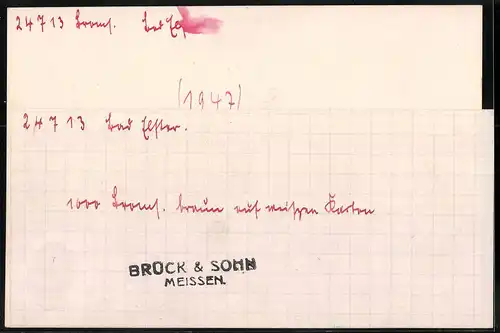 24713 Broms. Bad Els
(1947)
24713 Bad Elster.
1000 Broms. braun auf weißen Karton
BRÜCK & SOHN
MEISSEN.